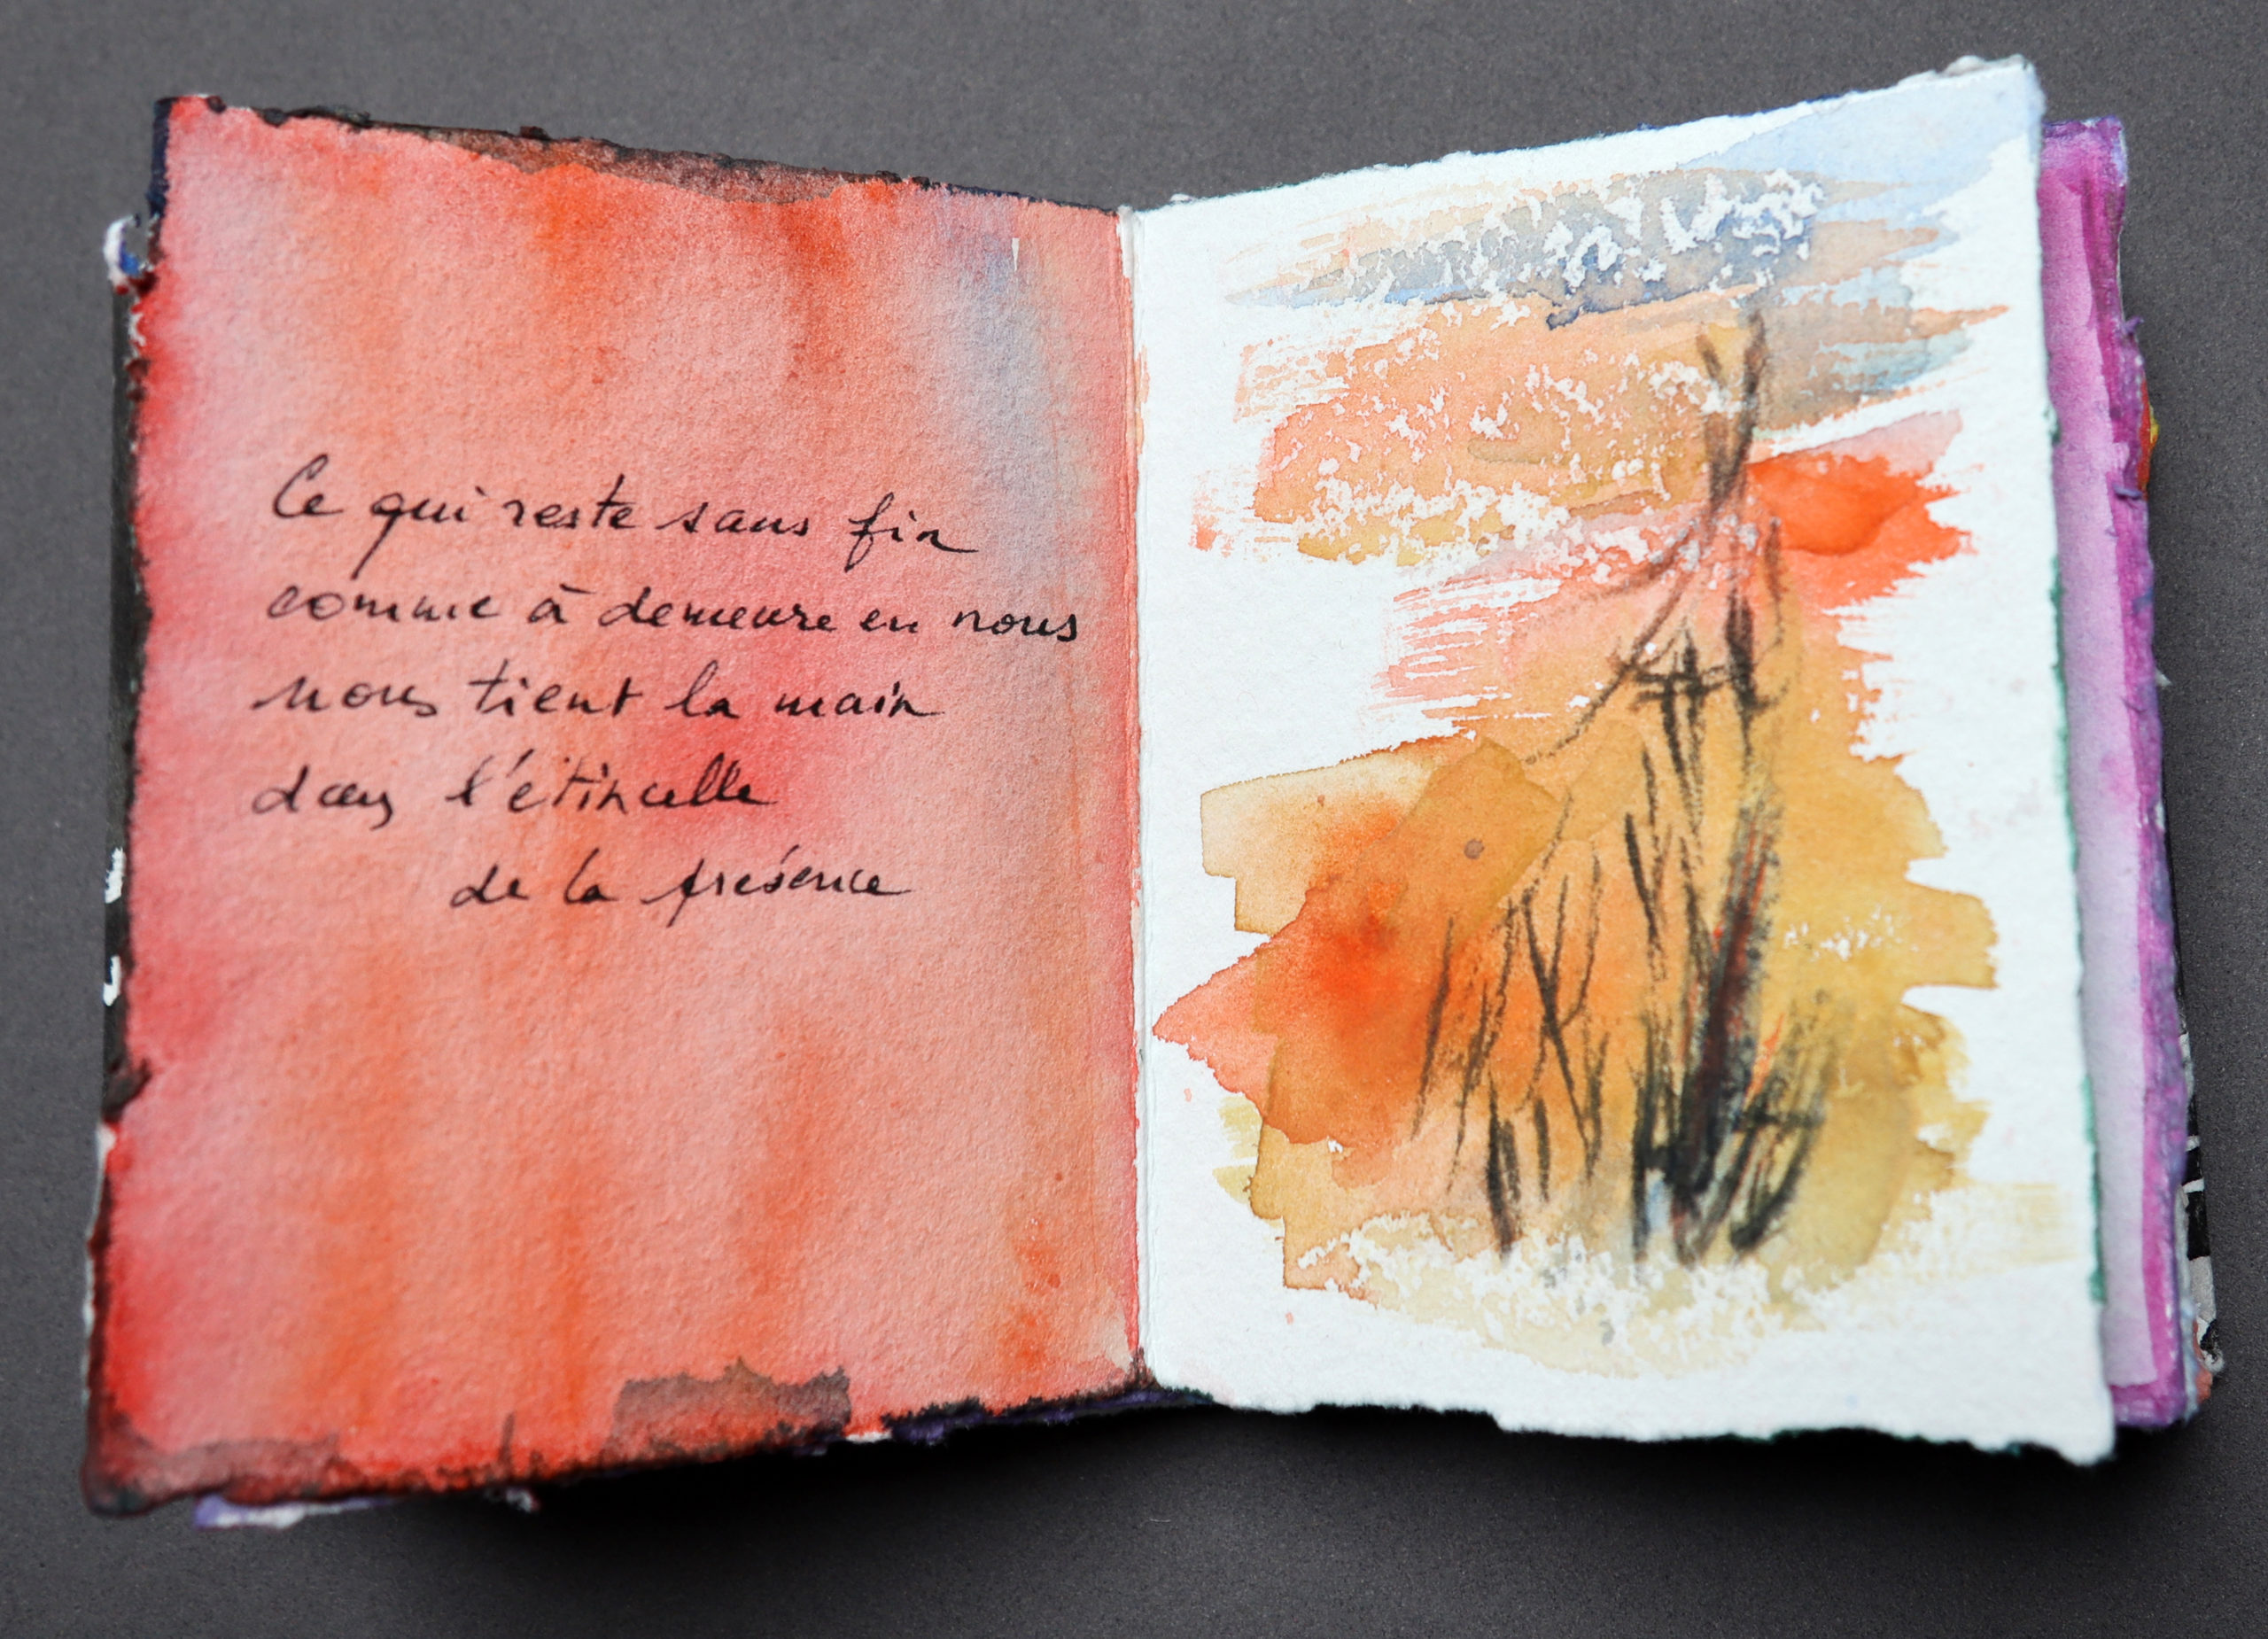 Ce qui reste sans fin
comme à demeure en nous
nous tient la main
dans l'étincelle
de la présence